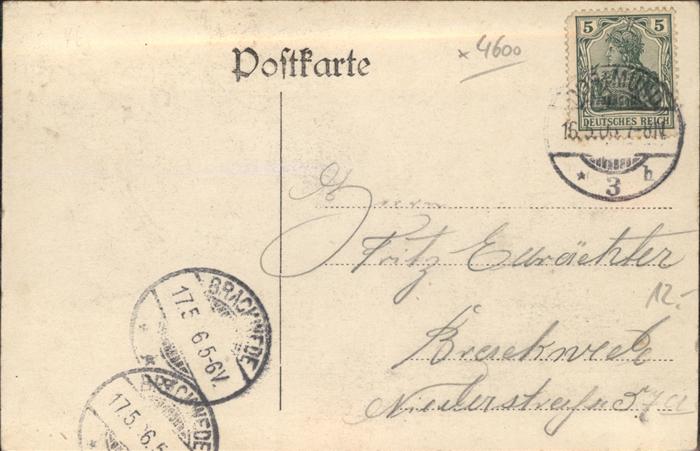 Postkarte
× 4600
5 5
DEUTSCHES REICH
DORTMUND
16.5.06.7-8N.
* 3 h
Herrn
Fritz
12.-
Brackwede
BRACKWEDE
17.5. 6.5-6V.
BRACKWEDE
17.5. 6.5